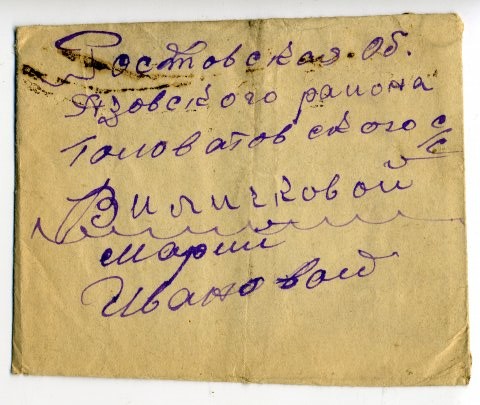 Ростовская Об.
Азовского района
Головатовского с/с
Виличковой
Марий
Ивановой